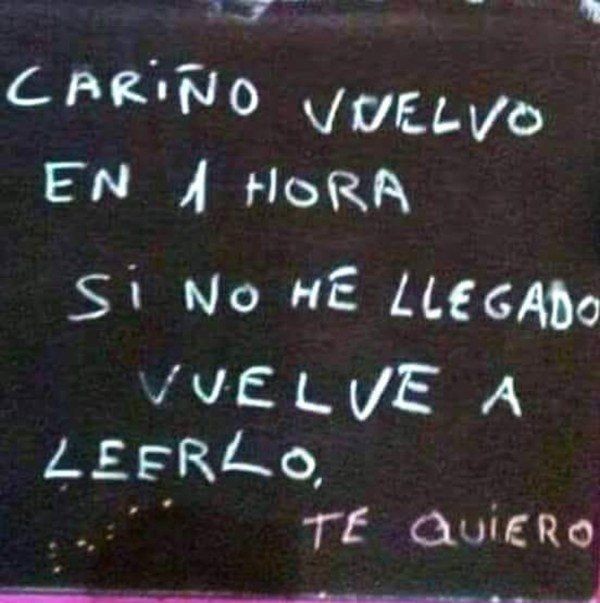 CARIÑO VUELVO
EN 1 HORA
SI NO HE LLEGADO
VUELVE A
LEERLO,
TE QUIERO